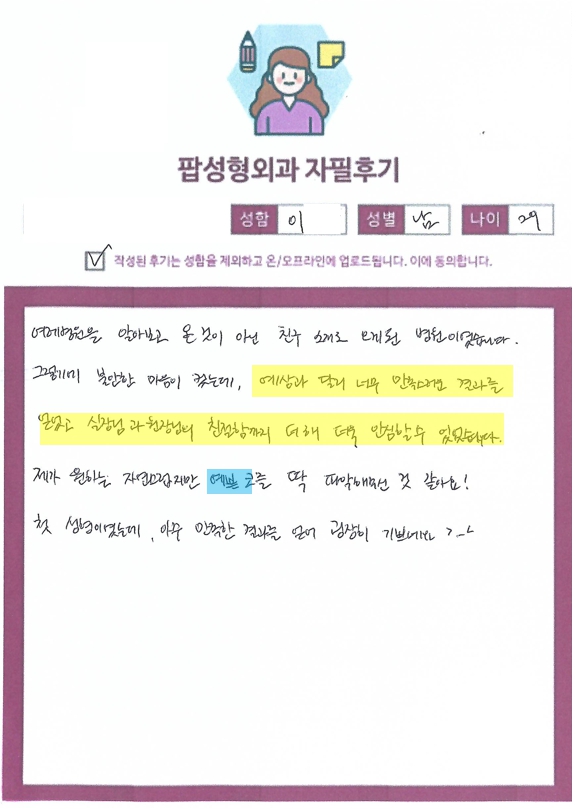 팝성형외과 자필후기
성함 이 성별 남 나이 29
작성된 후기는 성함을 제외하고 온/오프라인에 업로드됩니다. 이에 동의합니다.
여러병원을 알아보고 온것이 아닌 친구 소개로 오게된 병원이였습니다.
그렇기에 불안한 마음이 컸는데, 예상과 달리 너무 만족스러운 결과를
얻었고 실장님과 원장님의 친절함까지 더해 더욱 안심할수 있었습니다.
제가 원하는 자연스럽지만 예쁜 코를 딱 파악해주신 것 같아요!
첫 성형이였는데, 아주 만족한 결과를 얻어 굉장히 기쁘네요 ㄱ_ㄴ